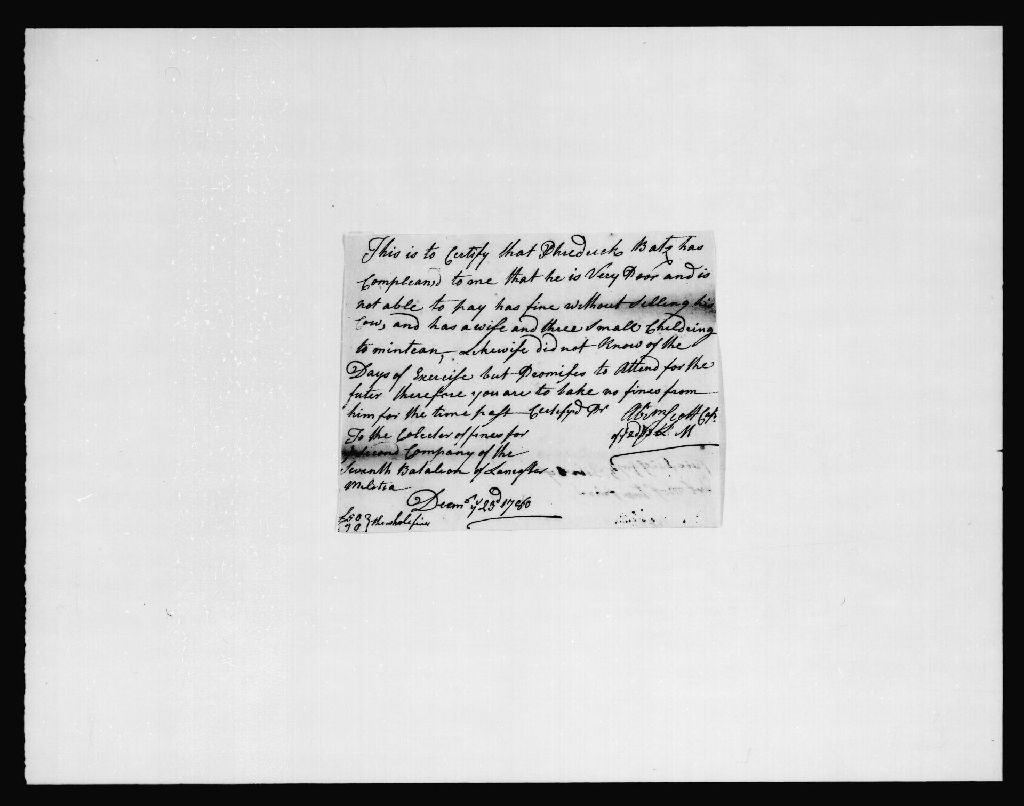 This is to Certify that Phreduck Batz has
Compleand to me that he is Very Poor and is
not able to pay has fine without Selling his
Cow, and has a wife and three Small Childring
to mintean, Likewise did not Know of the
Days of Exercise but Promises to Attend for the
futer therefore you are to take no fines from
him for the time past Certifyd Pr Abrm Scott Cap.
To the Colecter of fines for
Second Company of the
Seventh Batalion of Lancster
Militia
Decm. ye 23d 1780
£50
70 } the whole fine